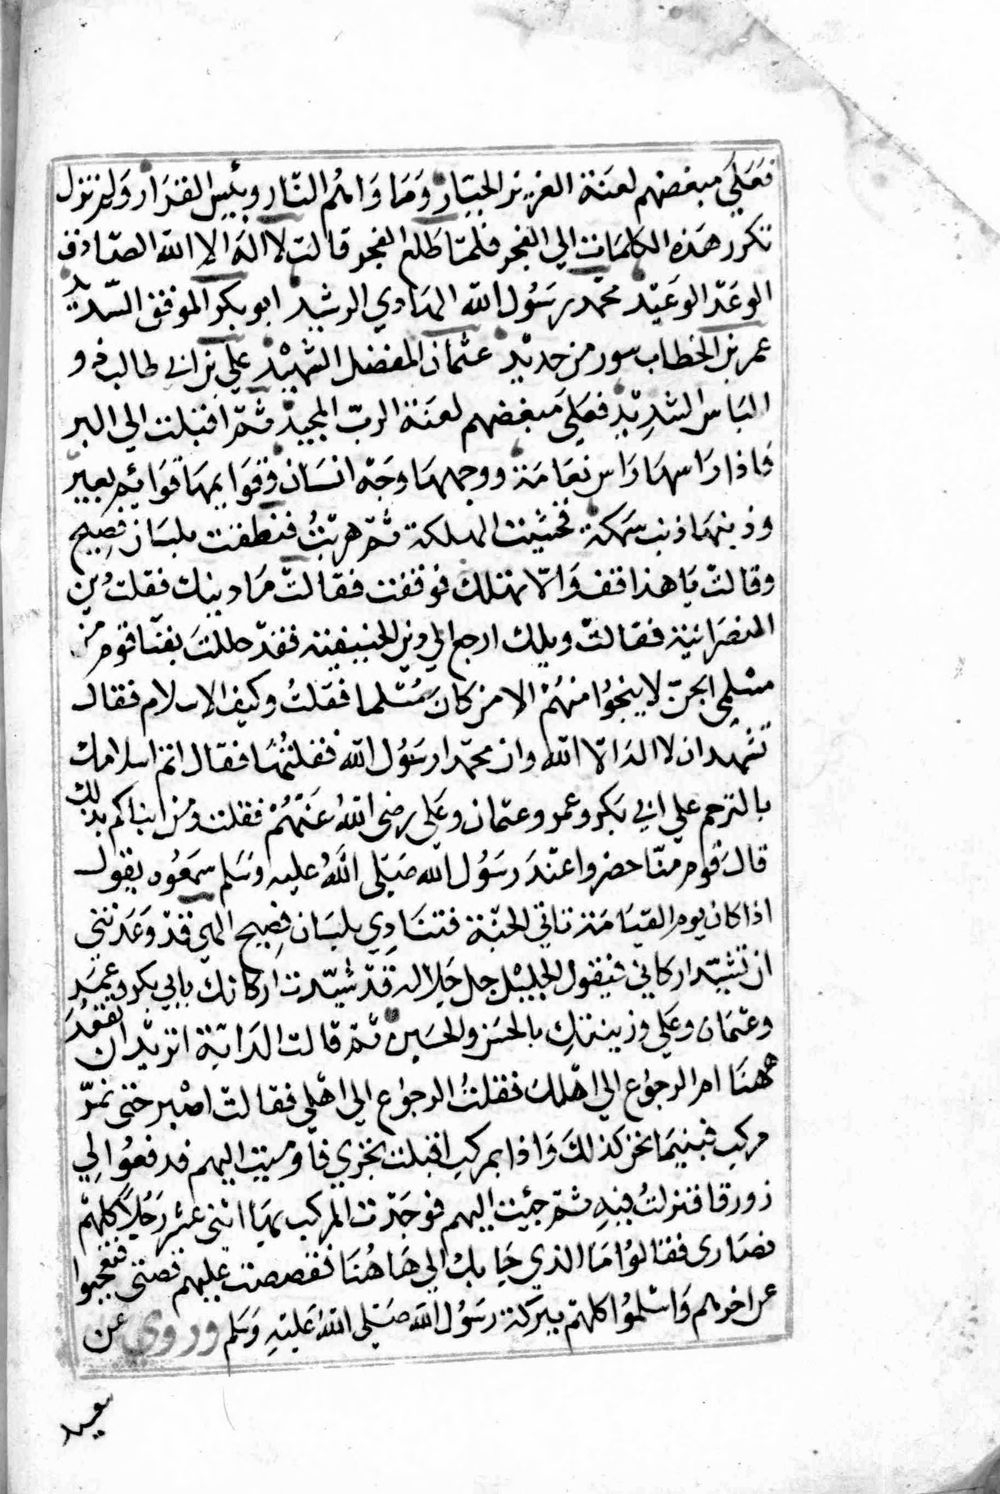 فعلي مبغضهم لعنة العزيز الجبار وماواهم النار وبئس القرار ولم تزل
تكرر هذه الكلمات الي الفجر فلما طلع الفجر قالت لا اله الا الله الصادق
الوعد الوعيد محمد رسول الله الهادي الرشيد ابو بكر الموفق السديد
عمر بن الخطاب سور من حديد عثمان المفضل الشهيد علي بن ابي طالب ذو
الباس الشديد فعلي مبغضهم لعنة الرب المجيد ثم اقبلت الي البر
فاذا راسها راس نعامة ووجهها وجه انسان وقوايمها قوائم بعير
وذنبها ذنب سمكة فخشيت الهلكة ثم هربت فنطقت بلسان فصيح
وقالت يا هذا قف والا تهلك فوقفت فقالت ما دينك فقلت دين
النصرانية فقالت ويلك ارجع الي دين الحنيفية فقد حللت بفنا قوم من
مسلمي الجن لا ينجوا منهم الا من كان مسلما فقلت وكيف الاسلام فقال
تشهد ان لا اله الا الله وان محمدا رسول الله فقلتها فقال اتم اسلامك
بالترحم علي ابي بكر وعمر وعثمان وعلي رضي الله عنهم فقلت ومن اتاكم بذلك
قال قوم منا حضروا عند رسول الله صلي الله عليه وسلم سمعوه يقول
اذا كان يوم القيامة تاتي الجنة فتنادي بلسان فصيح الهي قد وعدتني
ان تشيد اركاني فيقول الجليل جل جلاله قد شيدت اركانك بابي بكر وعمر
وعثمان وعلي وزينتك بالحسن والحسين ثم قالت الدابة اتريد ان تقعد
ههنا ام الرجوع الي اهلك فقلت الرجوع الي اهلي فقالت اصبر حتي تمر
مركب فبينما نحن كذلك واذا بمركب اقبلت تجري فاوميت اليهم فدفعوا لي
زورقا فنزلت فيه ثم جئت اليهم فوجدت المركب بها اثني عشر رجلا كلهم
نصاري فقالوا ما الذي جا بك الي هاهنا فقصصت عليهم قصتي فتعجبوا
عن اخرهم واسلموا كلهم ببركة رسول الله صلي الله عليه وسلم وروي عن
سعيد